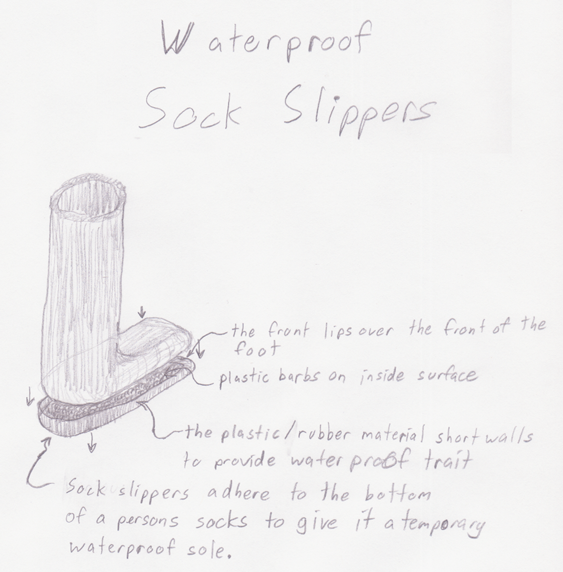 Waterproof
Sock Slippers
the front lips over the front of the
foot
plastic barbs on inside surface
the plastic/rubber material short walls
to provide waterproof trait
Sock slippers adhere to the bottom
of a persons socks to give it a temporary
waterproof sole.